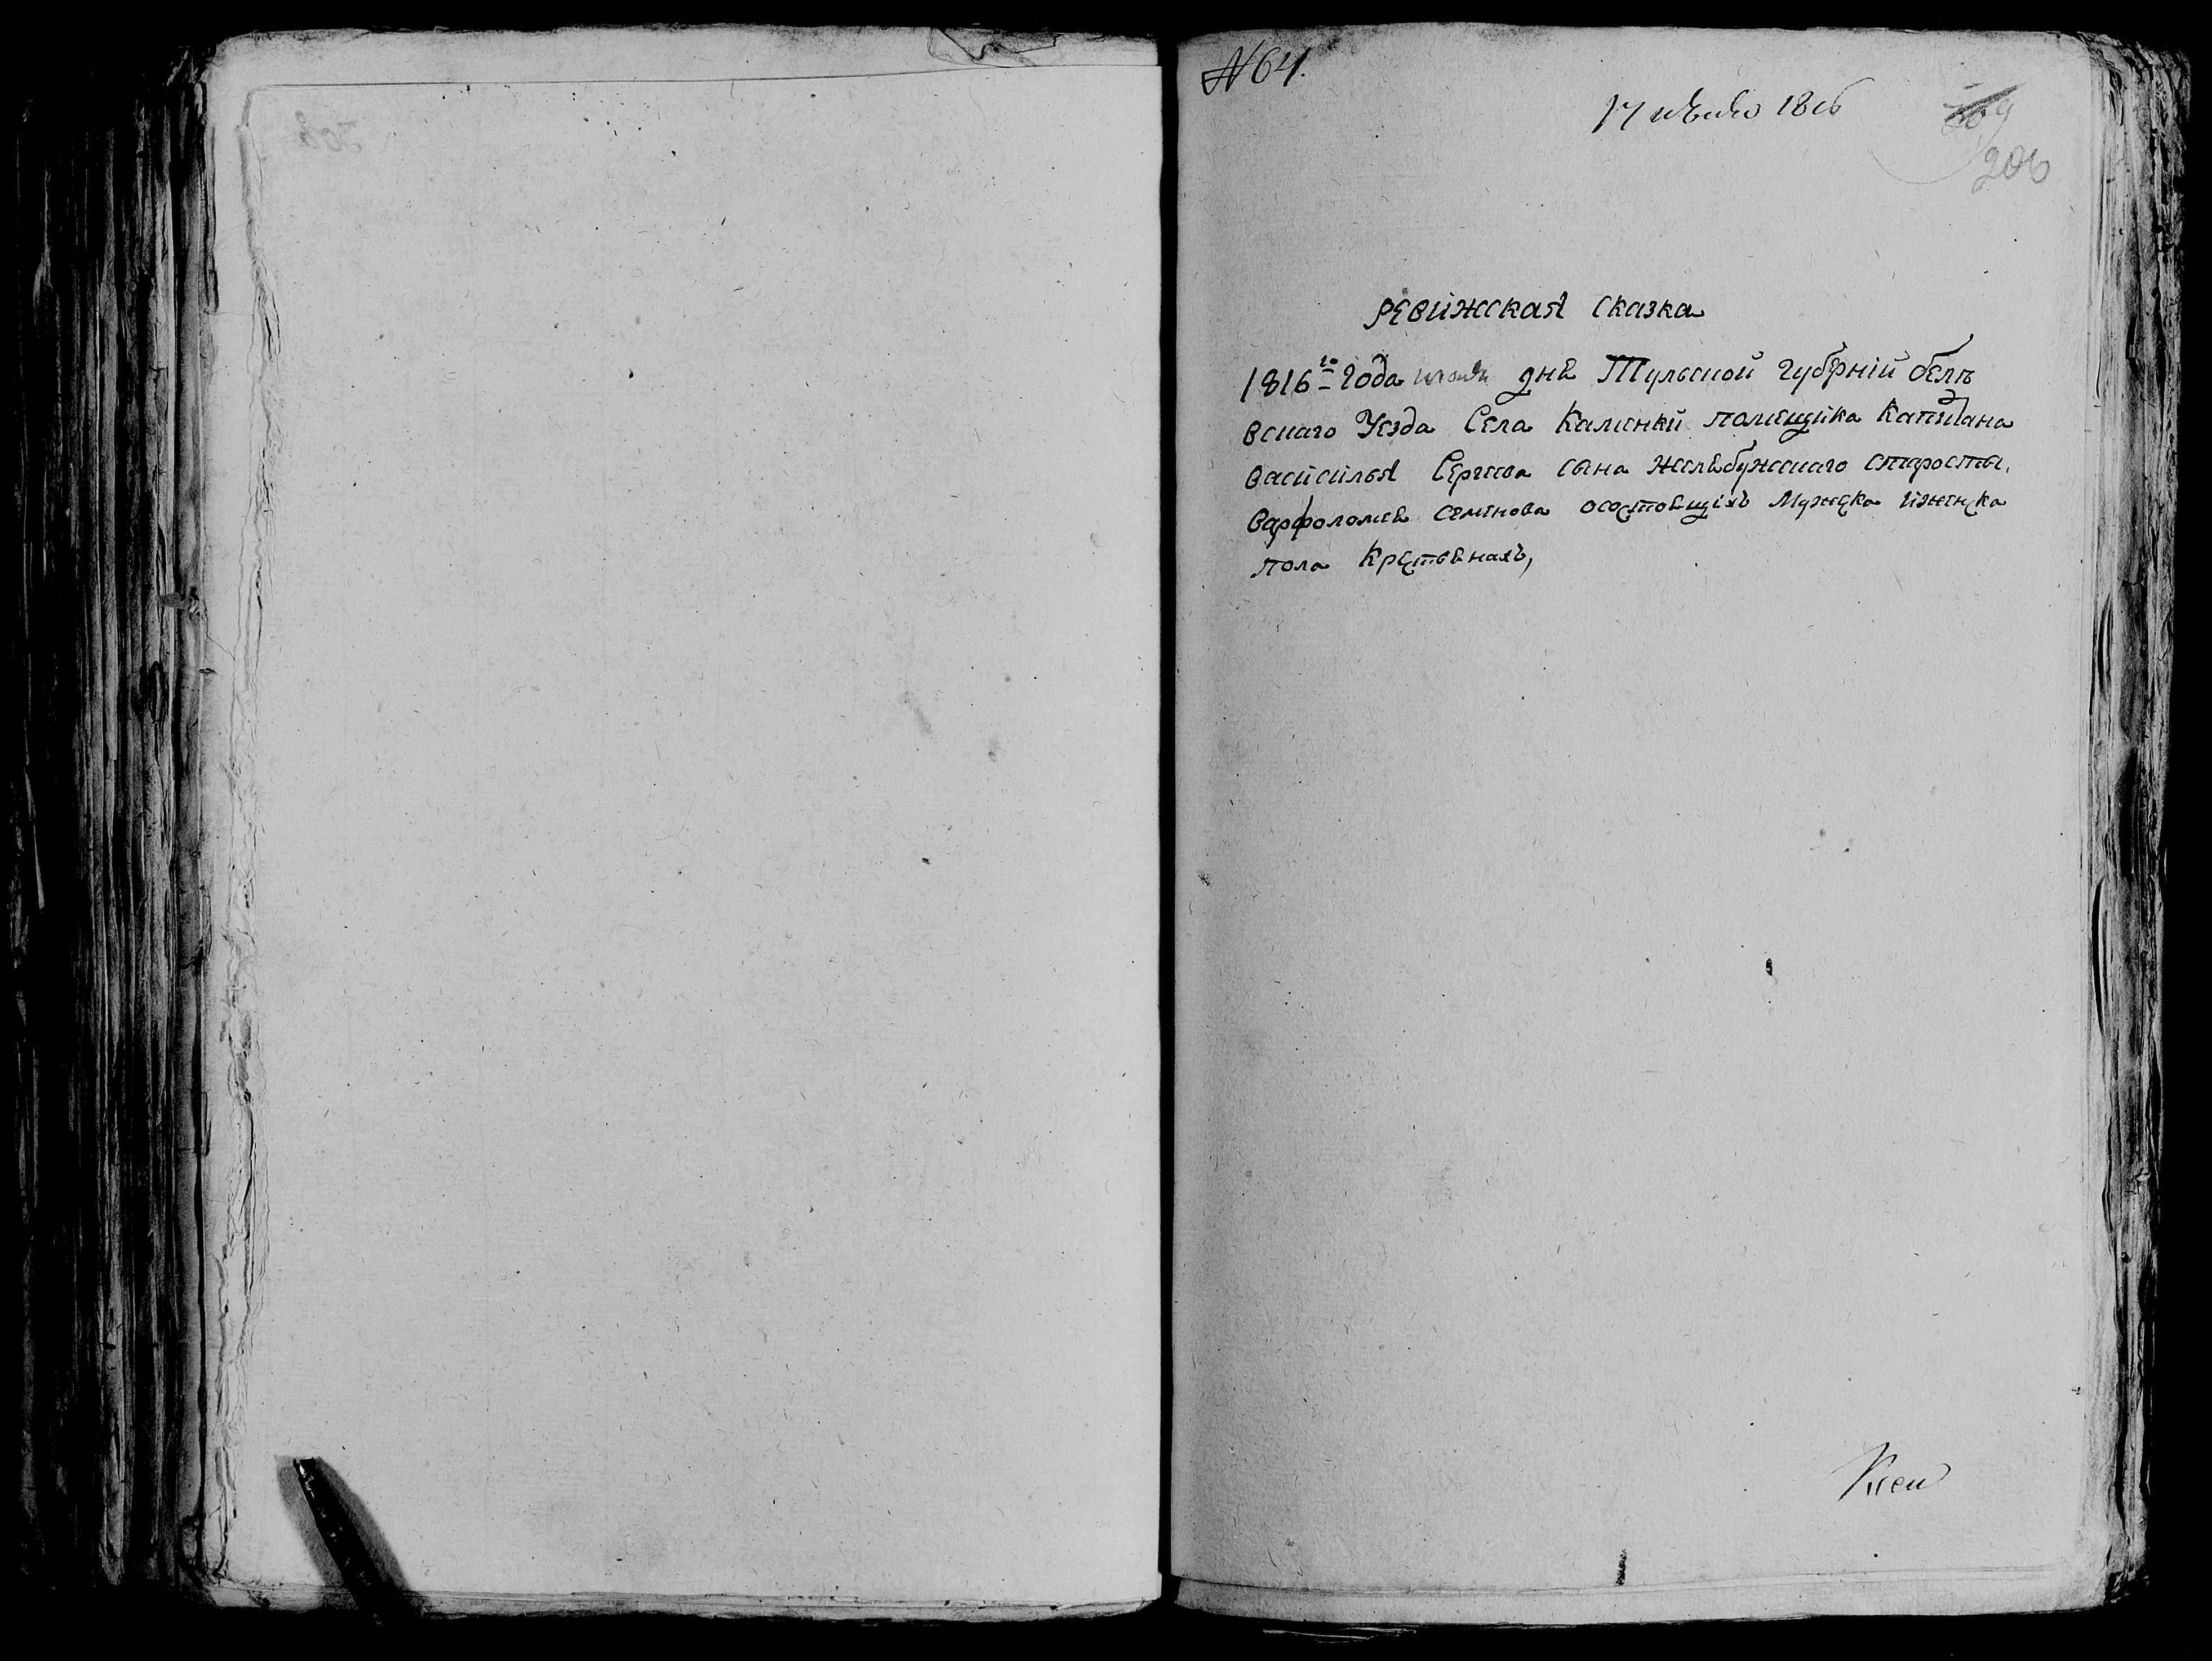 № 64.
17 июня 1816
309
206
Ревижская сказка
1816го года июня дня Тульской губерній беле
вскаго Уезда Села Каменки помещика Капитана
василья Сергеева сына желябужскаго старосты,
варфоломея семенова осостоящихъ Мужска иженска
пола Крестьянахъ,